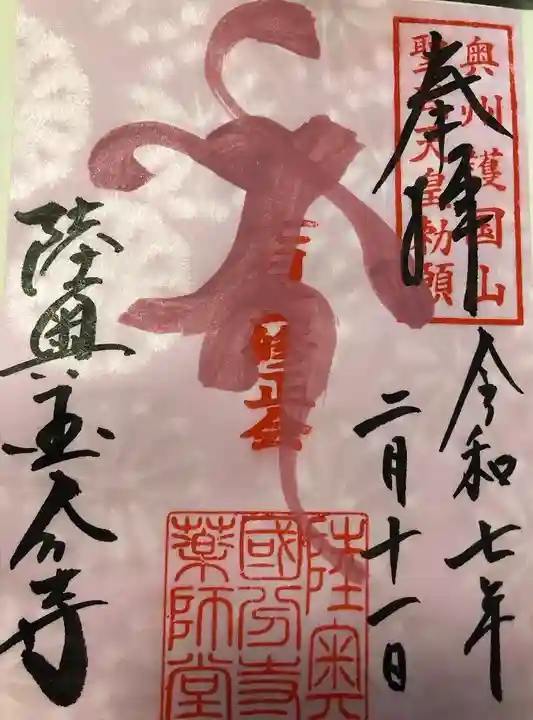 奉拝
奥州護国山
聖武天皇勅願
令和七年
二月十一日
陸奥國分寺
薬師堂
陸奥国分寺